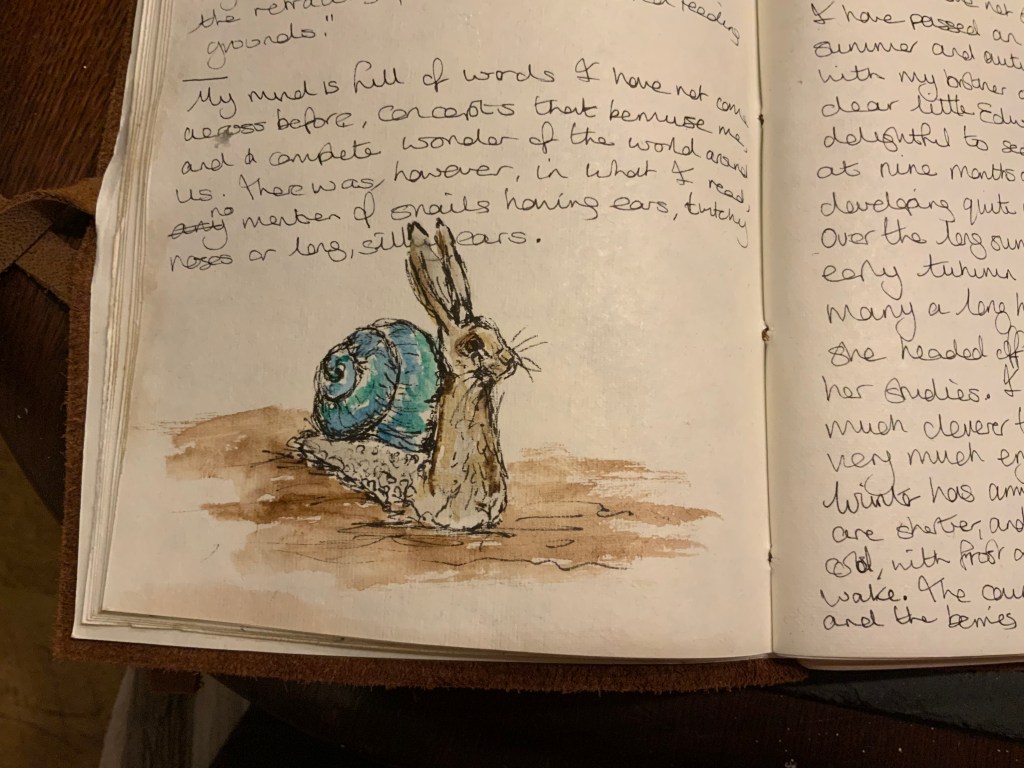 the
reading
grounds."
My mind is full of words I have not com
across before, concepts that bemuse me,
and a complete wonder of the world around
us. There was, however, in what I read,
any no mention of snails having ears, twitchy
noses or long, silky ears.
I have passed an
summer and autu
with my brother a
dear little Edw
delightful to see
at nine months o
developing quite
over the long sum
early tutumn
many a long h
she headed off
her studies. I
much cleverer t
very much en
Winter has arri
are shorter, and
cold, with frost a
wake. The cou
and the berries